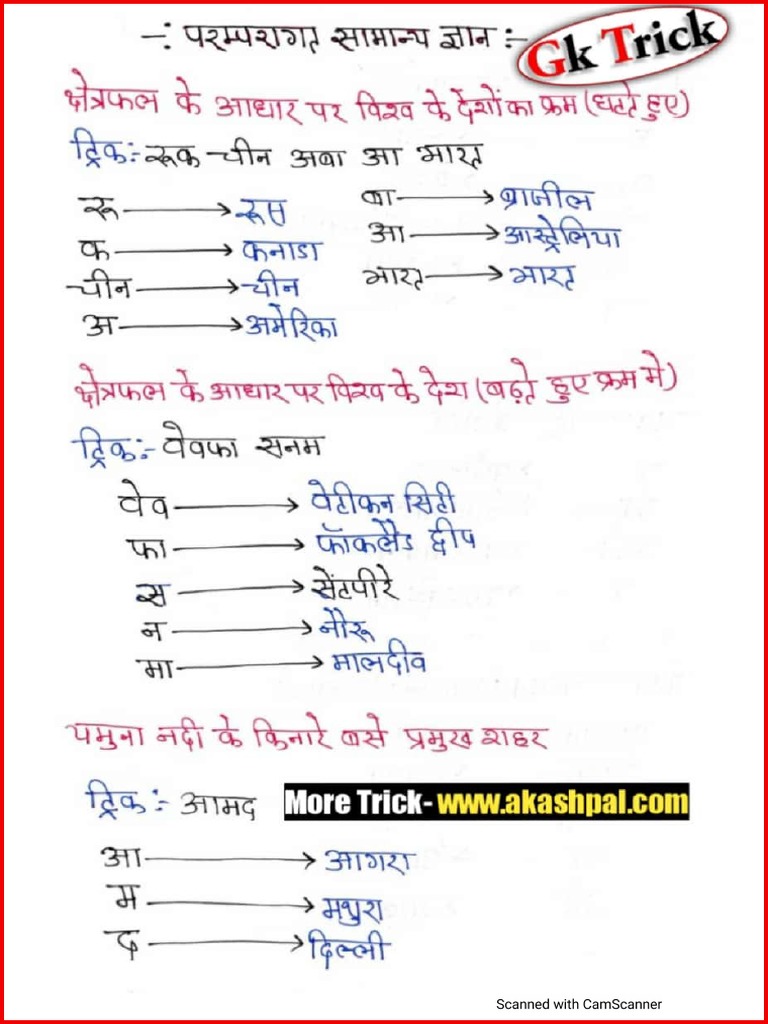 -: परम्परागत सामान्य ज्ञान :-
Gk Trick
क्षेत्रफल के आधार पर विश्व के देशों का क्रम (घटते हुए)
ट्रिक:- रूक चीन अबा आ भारत
रू → रूस
क → कनाडा
चीन → चीन
अ → अमेरिका
बा → ब्राजील
आ → आस्ट्रेलिया
भारत → भारत
क्षेत्रफल के आधार पर विश्व के देश (बढ़ते हुए क्रम मे)
ट्रिक:- वेवफा सनम
वेव → वेटीकन सिटी
फा → फॉकलैंड द्वीप
स → सेंटपीरे
न → नौरू
मा → मालदीव
यमुना नदी के किनारे बसे प्रमुख शहर
ट्रिक:- आमद
More Trick- www.akashpal.com
आ → आगरा
म → मथुरा
द → दिल्ली
Scanned with CamScanner